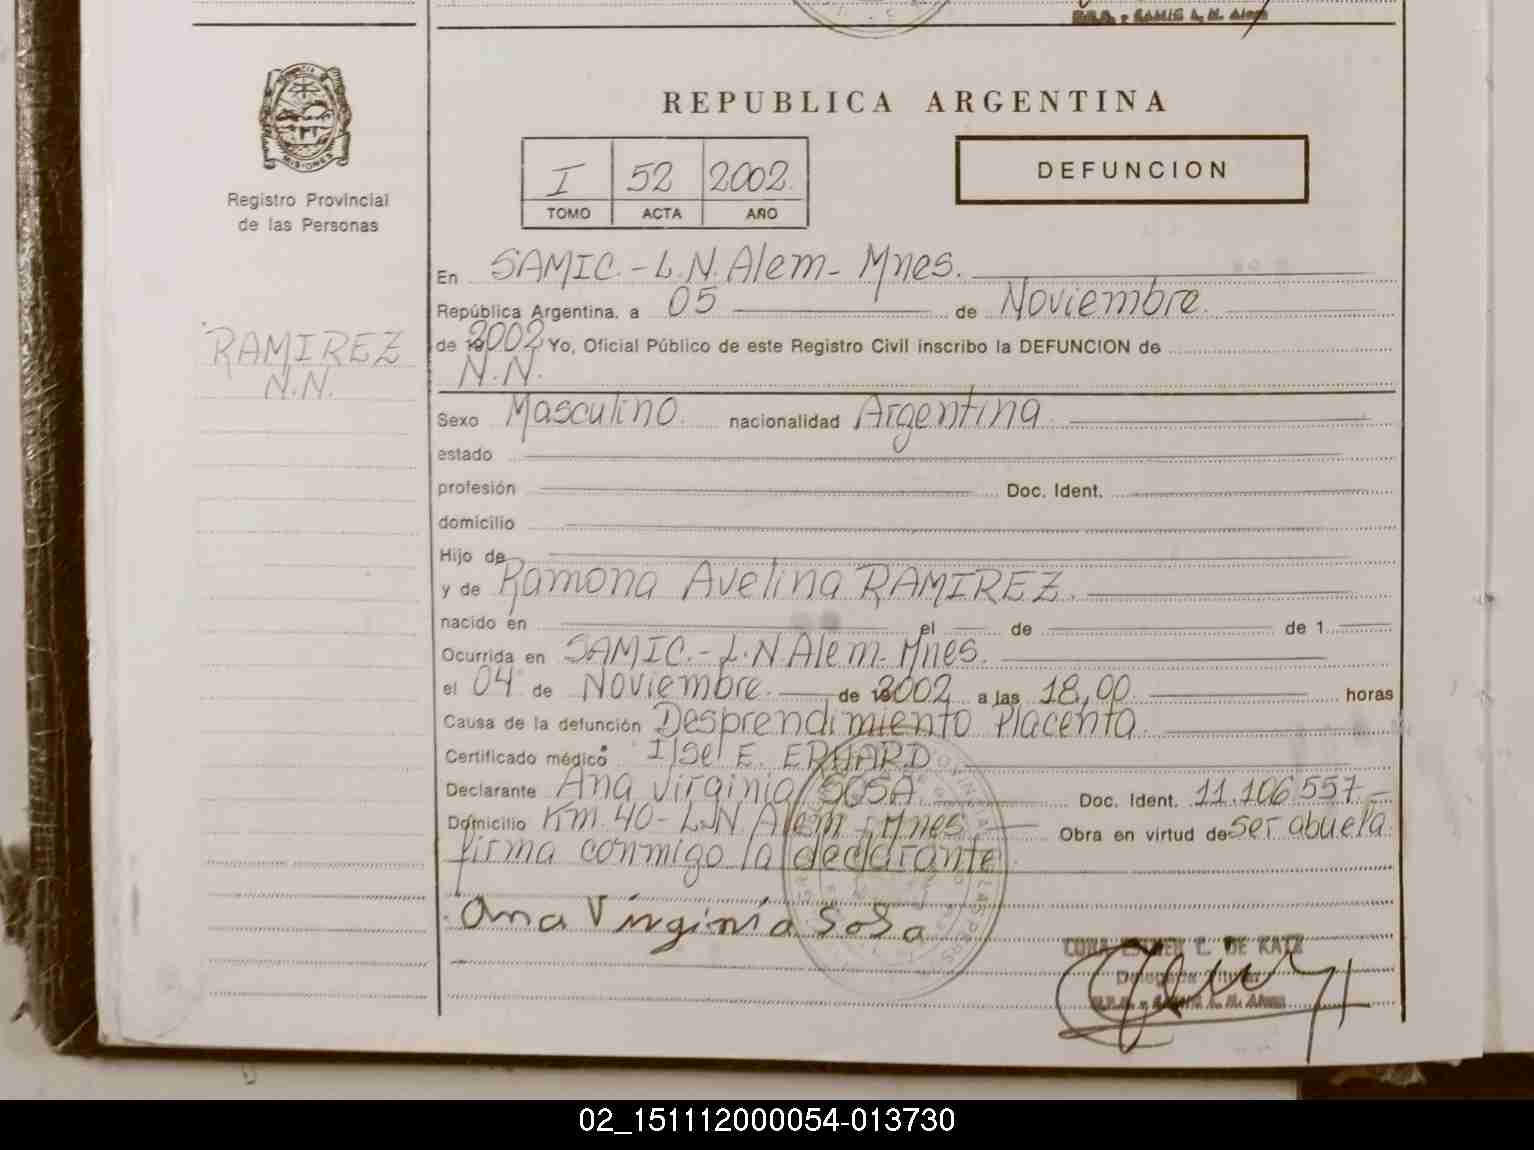 MISIONES
Registro Provincial
de las Personas
RAMIREZ
N.N.
REPUBLICA ARGENTINA
I 52 2002
TOMO ACTA AÑO
DEFUNCION
En SAMIC.-L.N.Alem-Mnes.
República Argentina, a 05 de Noviembre
de 2002 Yo, Oficial Público de este Registro Civil inscribo la DEFUNCION de
N.N.
Sexo Masculino nacionalidad Argentina
estado
profesión Doc. Ident.
domicilio
Hijo de
y de Ramona Avelina RAMIREZ.
nacido en el de de 1
Ocurrida en SAMIC.-L.N Alem-Mnes.
el 04 de Noviembre. de 2002 a las 18,00 horas
Causa de la defunción Desprendimiento Placenta
Certificado médico Ilse E. ERHARD
Declarante Ana Virginia SOSA Doc. Ident. 11.106.557
Domicilio Km.40-L.N Alem-Mnes Obra en virtud de ser abuela
firma conmigo la declarante
Ana Virginia Sosa
C. DE KATZ
Delegada Titular
02_151112000054-013730